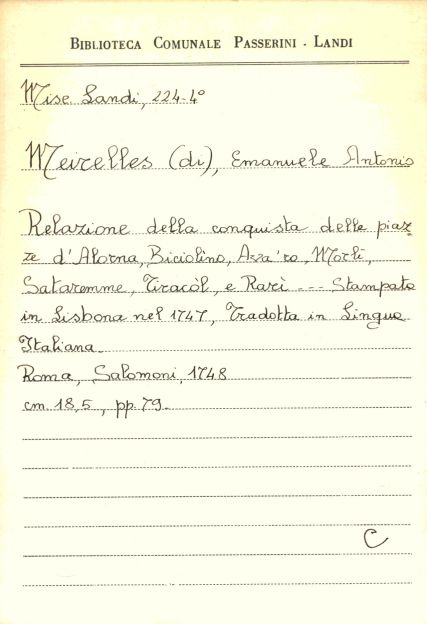 BIBLIOTECA COMUNALE PASSERINI - LANDI
Misc. Landi, 224-4°
Meirelles (di), Emanuele Antonio
Relazione della conquista delle piaz
ze d'Alorna, Biciolino, Avara'ro, Morlì,
Sataremme, Tiracòl, e Rarì --- Stampato
in Lisbona nel 1747, Tradotta in Lingua
Italiana.
Roma, Salomoni, 1748
cm. 18,5, pp. 79.
C